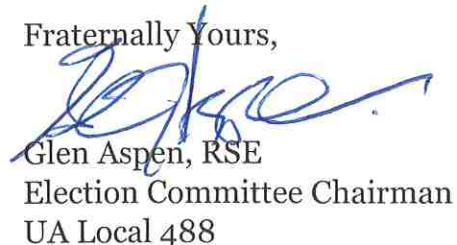 Fraternally Yours,
Glen Aspen, RSE
Election Committee Chairman
UA Local 488